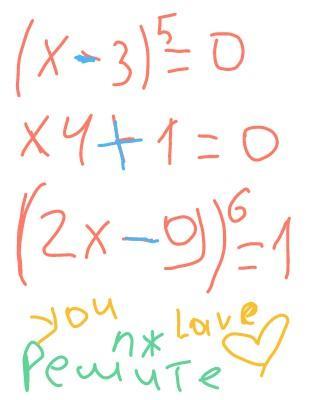 (x - 3)⁵ = 0
x4 + 1 = 0
(2x - 9)⁶ = 1
you Love
n*
Решите